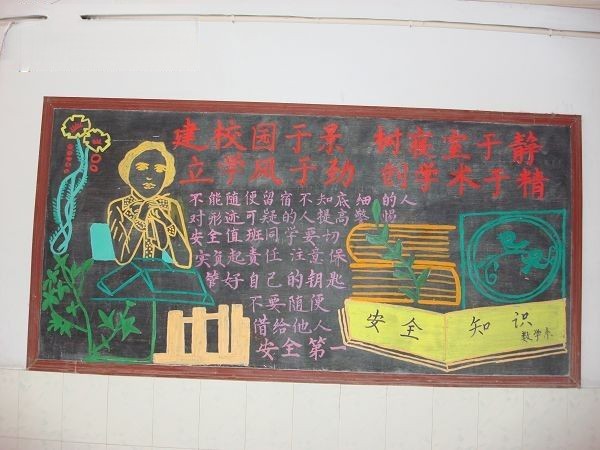 建校园于景 树寝室于静
立学风于劲 创学术于精
不能随便留宿不知底细的人
对形迹可疑的人提高警惕
安全值班同学要切
实负起責任 注意保
管好自己的钥匙
不要随便
借给他人
安全第一
安全知识
数学系